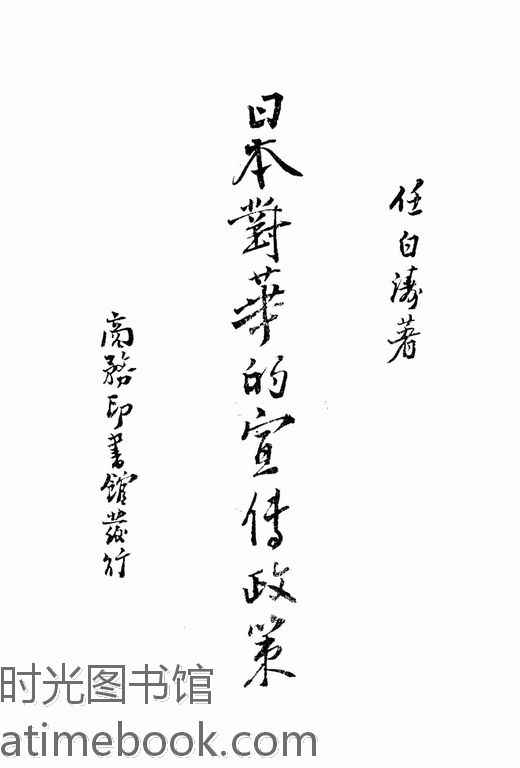 任白濤著
日本對華的宣傳政策
商務印書館發行
时光图书馆
atimebook.com